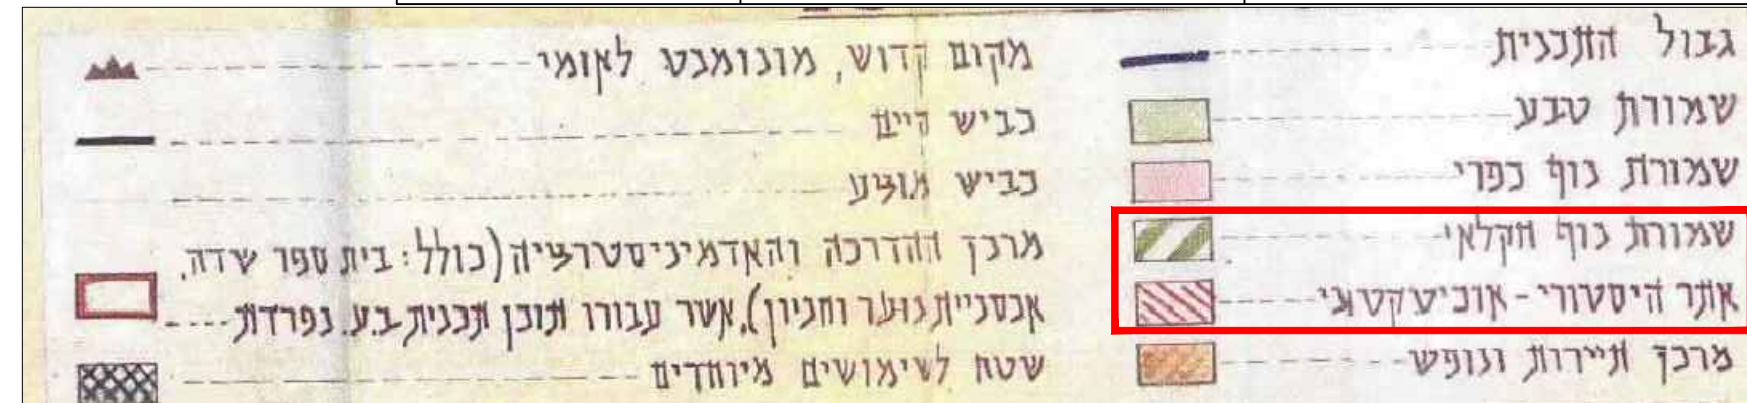 גבול התכנית
שמורת טבע
שמורת נוף כפרי
שמורת נוף חקלאי
אתר היסטורי - ארכיטקטוני
מרכז תיירות ונופש
מקום קדוש, מונומנט לאומי
כביש קיים
כביש מוצע
מרכז ההדרכה והאדמיניסטרציה (כולל: בית ספר שדה,
אכסניית נוער וחניון), אשר עבורו תוכן תכנית ב.ע. נפרדת
שטח לשימושים מיוחדים